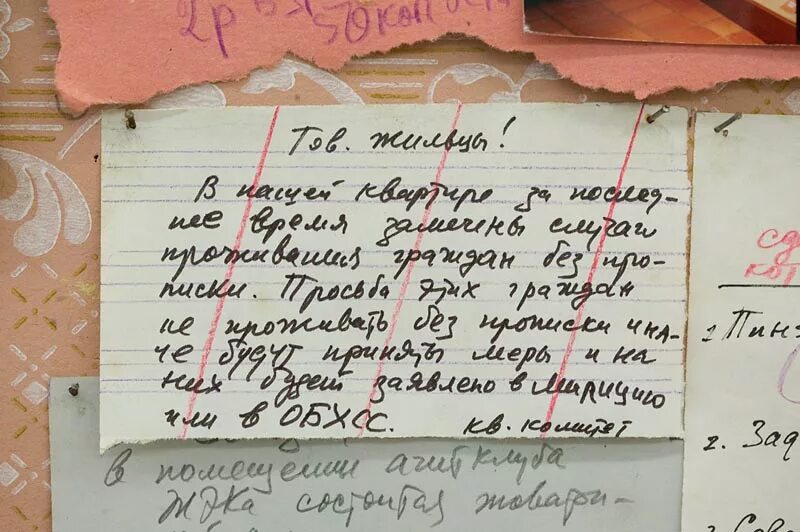 2р
50 коп
Тов. жильцы!
В нашей квартире за послед-
нее время замечены случаи
проживания граждан без про-
писки. Просьба этих граждан
не проживать без прописки ина-
че будут приняты меры и на
них будет заявлено в милицию
или в ОБХСС. кв. комитет
в помещении агитклуба
ЖЭКа состоится
2. Зад